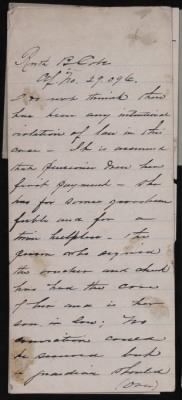 Ruth B Cole
Of No. 29.096.
I do not think there
has been any intentional
violation of law in this
case - It is assumed
that pensioner drew her
first payment - she
has for some years been
feeble and for a
time helpless - the
person who signed
the voucher and check
has had the care
of her and is her
son in law; No
conviction could
be secured but
a guardian should
(over)